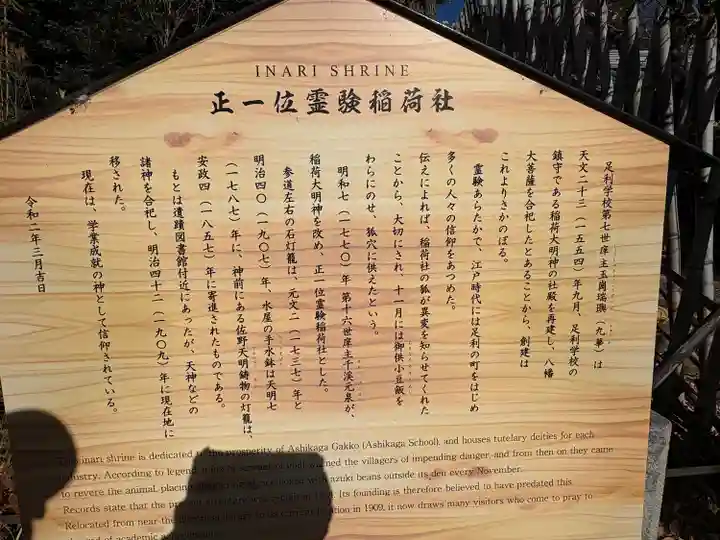 INARI SHRINE
正一位霊験稲荷社
足利学校第七世庠主玉崗瑞璵(九華)は
天文二十三(一五五四)年九月、足利学校の
鎮守である稲荷大明神の社殿を再建し、八幡
大菩薩を合祀したとあることから、創建は
これよりさかのぼる。
霊験あらたかで、江戸時代には足利の町をはじめ
多くの人々の信仰をあつめた。
伝えによれば、稲荷社の狐が異変を知らせてくれた
ことから、大切にされ、十一月には御供小豆飯を
わらにのせ、狐穴に供えたという。
明和七(一七七〇)年 第十六世庠主千溪元泉が、
稲荷大明神を改め、正一位霊験稲荷社とした。
参道左右の石灯籠は、元文二(一七三七)年と
明治四〇(一九〇七)年、水屋の手水鉢は天明七
(一七八七)年に、神前にある佐野天明鋳物の灯籠は、
安政四(一八五七)年に寄進されたものである。
もとは遺蹟図書館付近にあったが、天神などの
諸神を合祀し、明治四十二(一九〇九)年に現在地に
移された。
現在は、学業成就の神として信仰されている。
令和二年三月吉日
inari shrine is dedicated to the prosperity of Ashikaga Gakko (Ashikaga School), and houses tutelary deities for each
industry. According to legend, a fox warned the villagers of impending danger, and from then on they came
to revere the animal, placing azuki beans outside its den every November.
Records state that the Its founding is therefore believed to have predated this
Relocated from near the in 1909, it now draws many visitors who come to pray to
of academic